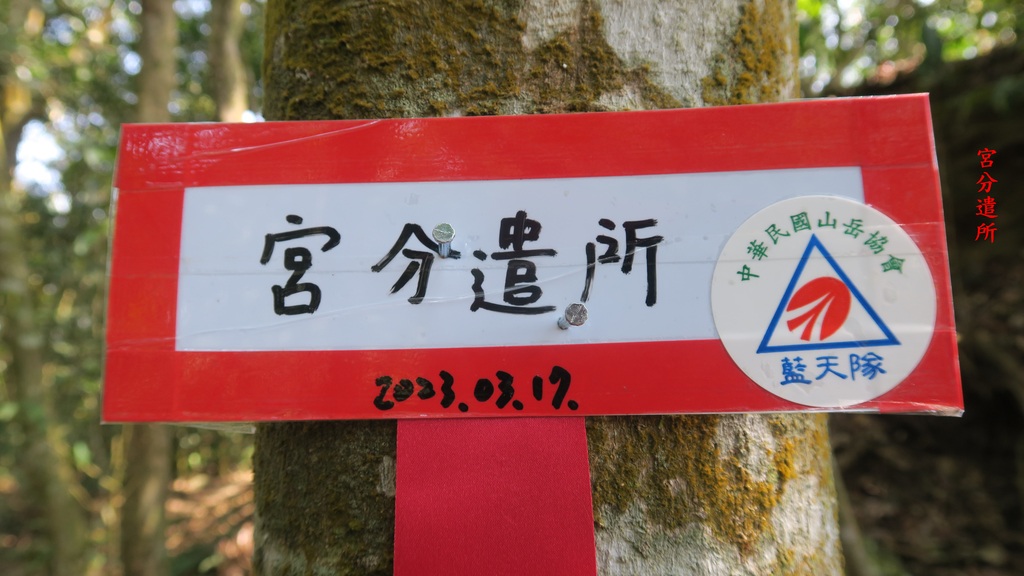 宮分遣所
2023.03.17.
中華民國山岳協會
藍天隊
宮分遣所